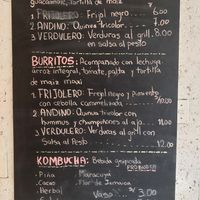 guacamole, tortilla de maíz
1. FRIJOLERO: Frijol negro 6.00
2. ANDINO: Quinua tricolor 7.00
3. VERDULERO: Verduras al grill 8.00
en salsa al pesto
BURRITOS: Acompañado con lechuga,
arroz integral, tomate, palta y tortilla
de maíz maui
1. FRIJOLERO: Frejol negro y pimiento
con cebolla caramelizada 10.00
2. ANDINO: Quinua tricolor con
hummus y champiñones al ajo 11.00
3. VERDULERO: Verduras al grill con
Salsa al Pesto 12.00
KOMBUCHA: Bebida gasificada
• Piña • Maracuyá
• Cacao • Flor de Jamaica
• Herbal Vaso S/ 3.00